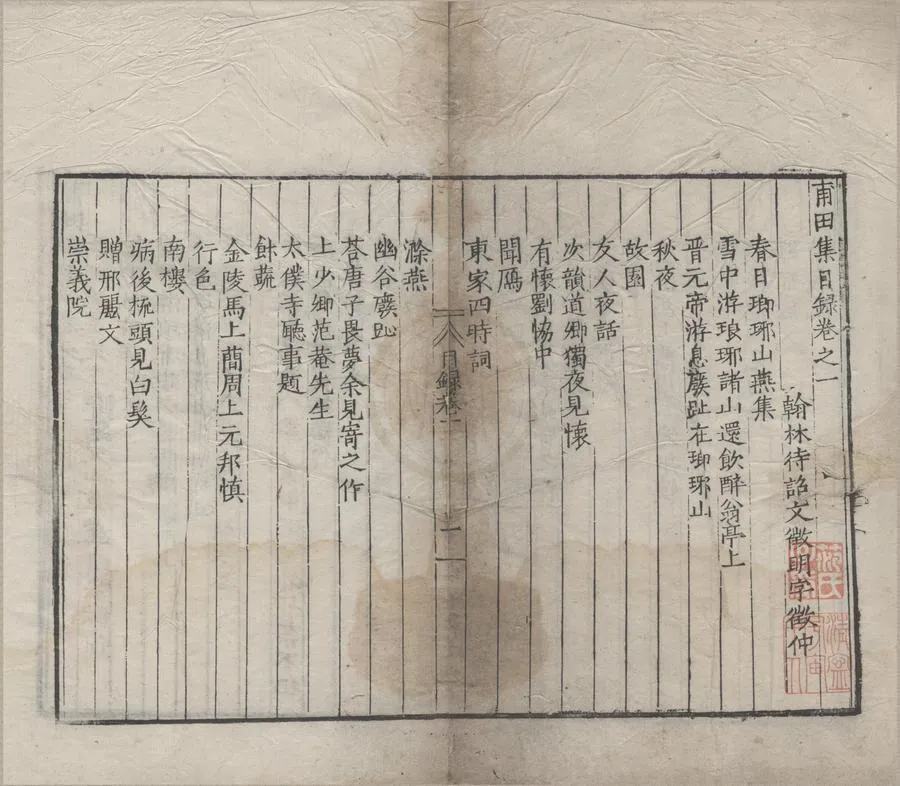 甫田集目録卷之一
翰林待詔文徵明字徵仲
春日瑯琊山燕集
雪中游琅琊諸山還飲醉翁亭上
晋元帝游息廢趾在瑯琊山
秋夜
故園
友人夜話
次韻道卿獨夜見懷
有懷劉協中
聞鴈
東家四時詞
目録卷一
一
滁燕
幽谷廢趾
荅唐子畏夢余見寄之作
上少卿范菴先生
太僕寺聽事題
餘蔬
金陵馬上蕳周上元邦慎
行色
南樓
病後梳頭見白髮
贈邢麗文
崇義院